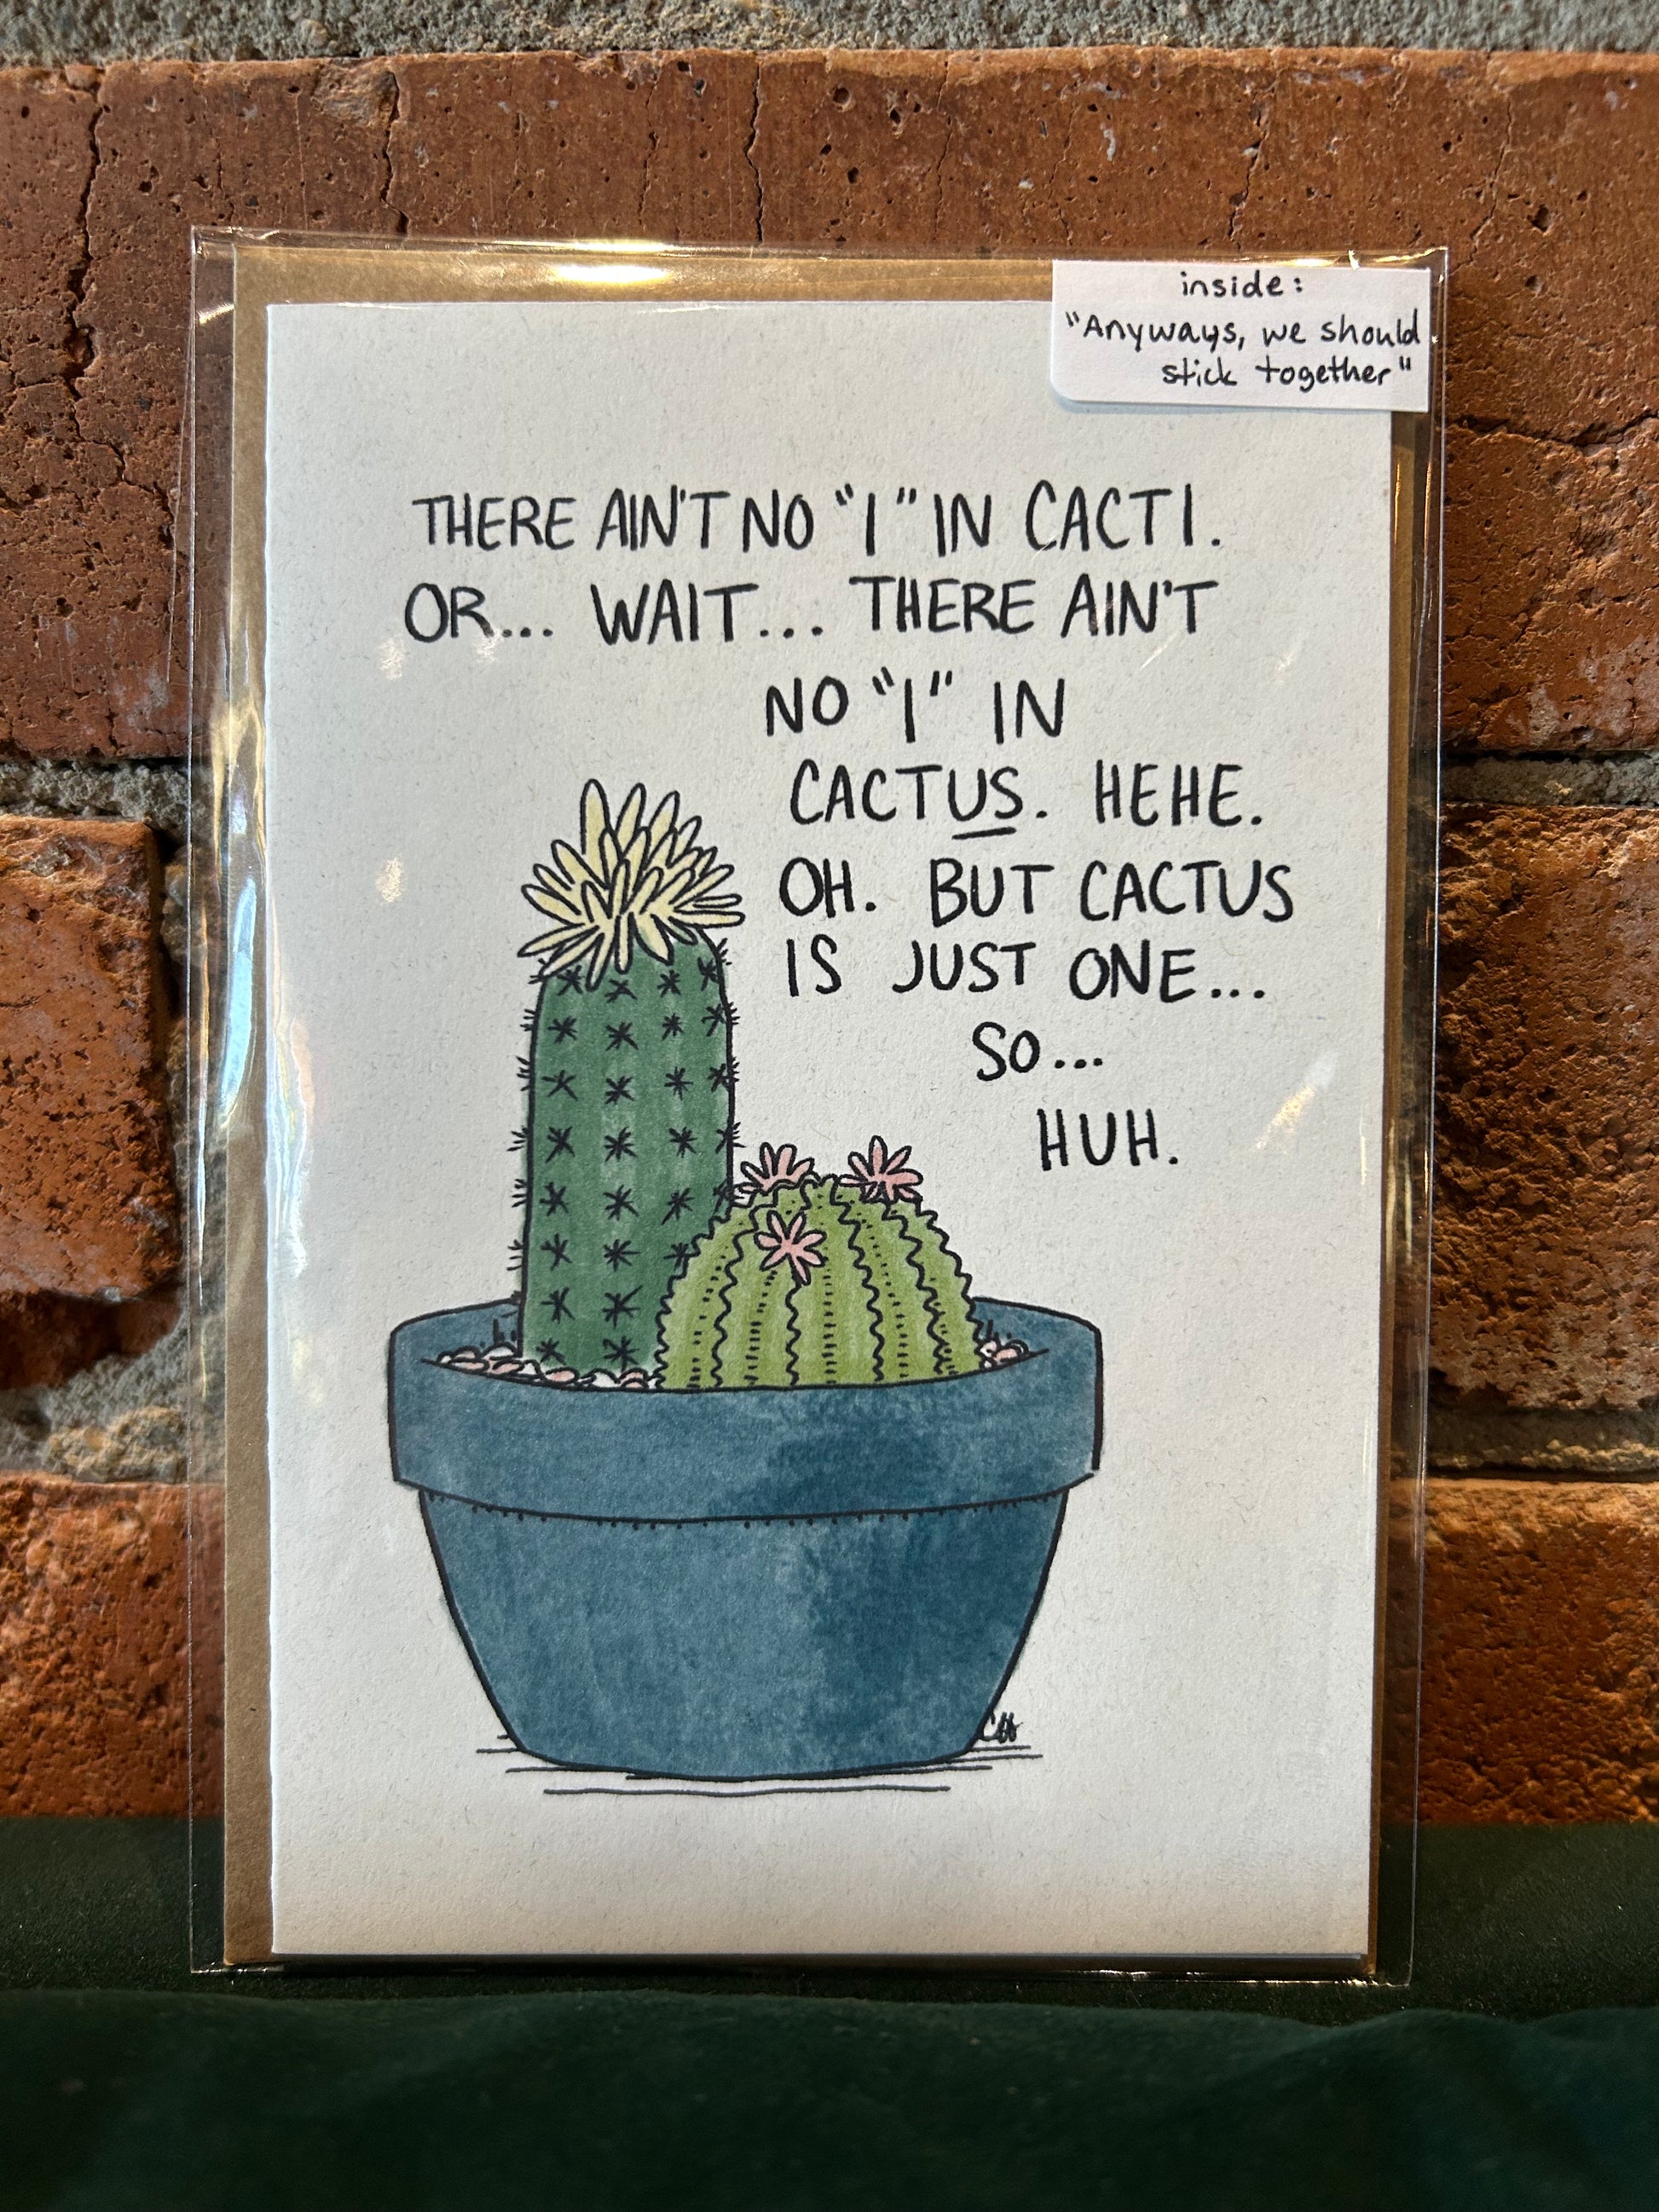 inside:
"Anyways, we should
stick together"
THERE AIN'T NO "I" IN CACTI.
OR... WAIT... THERE AIN'T
NO "I" IN
CACTUS. HEHE.
OH. BUT CACTUS
IS JUST ONE...
SO...
HUH.